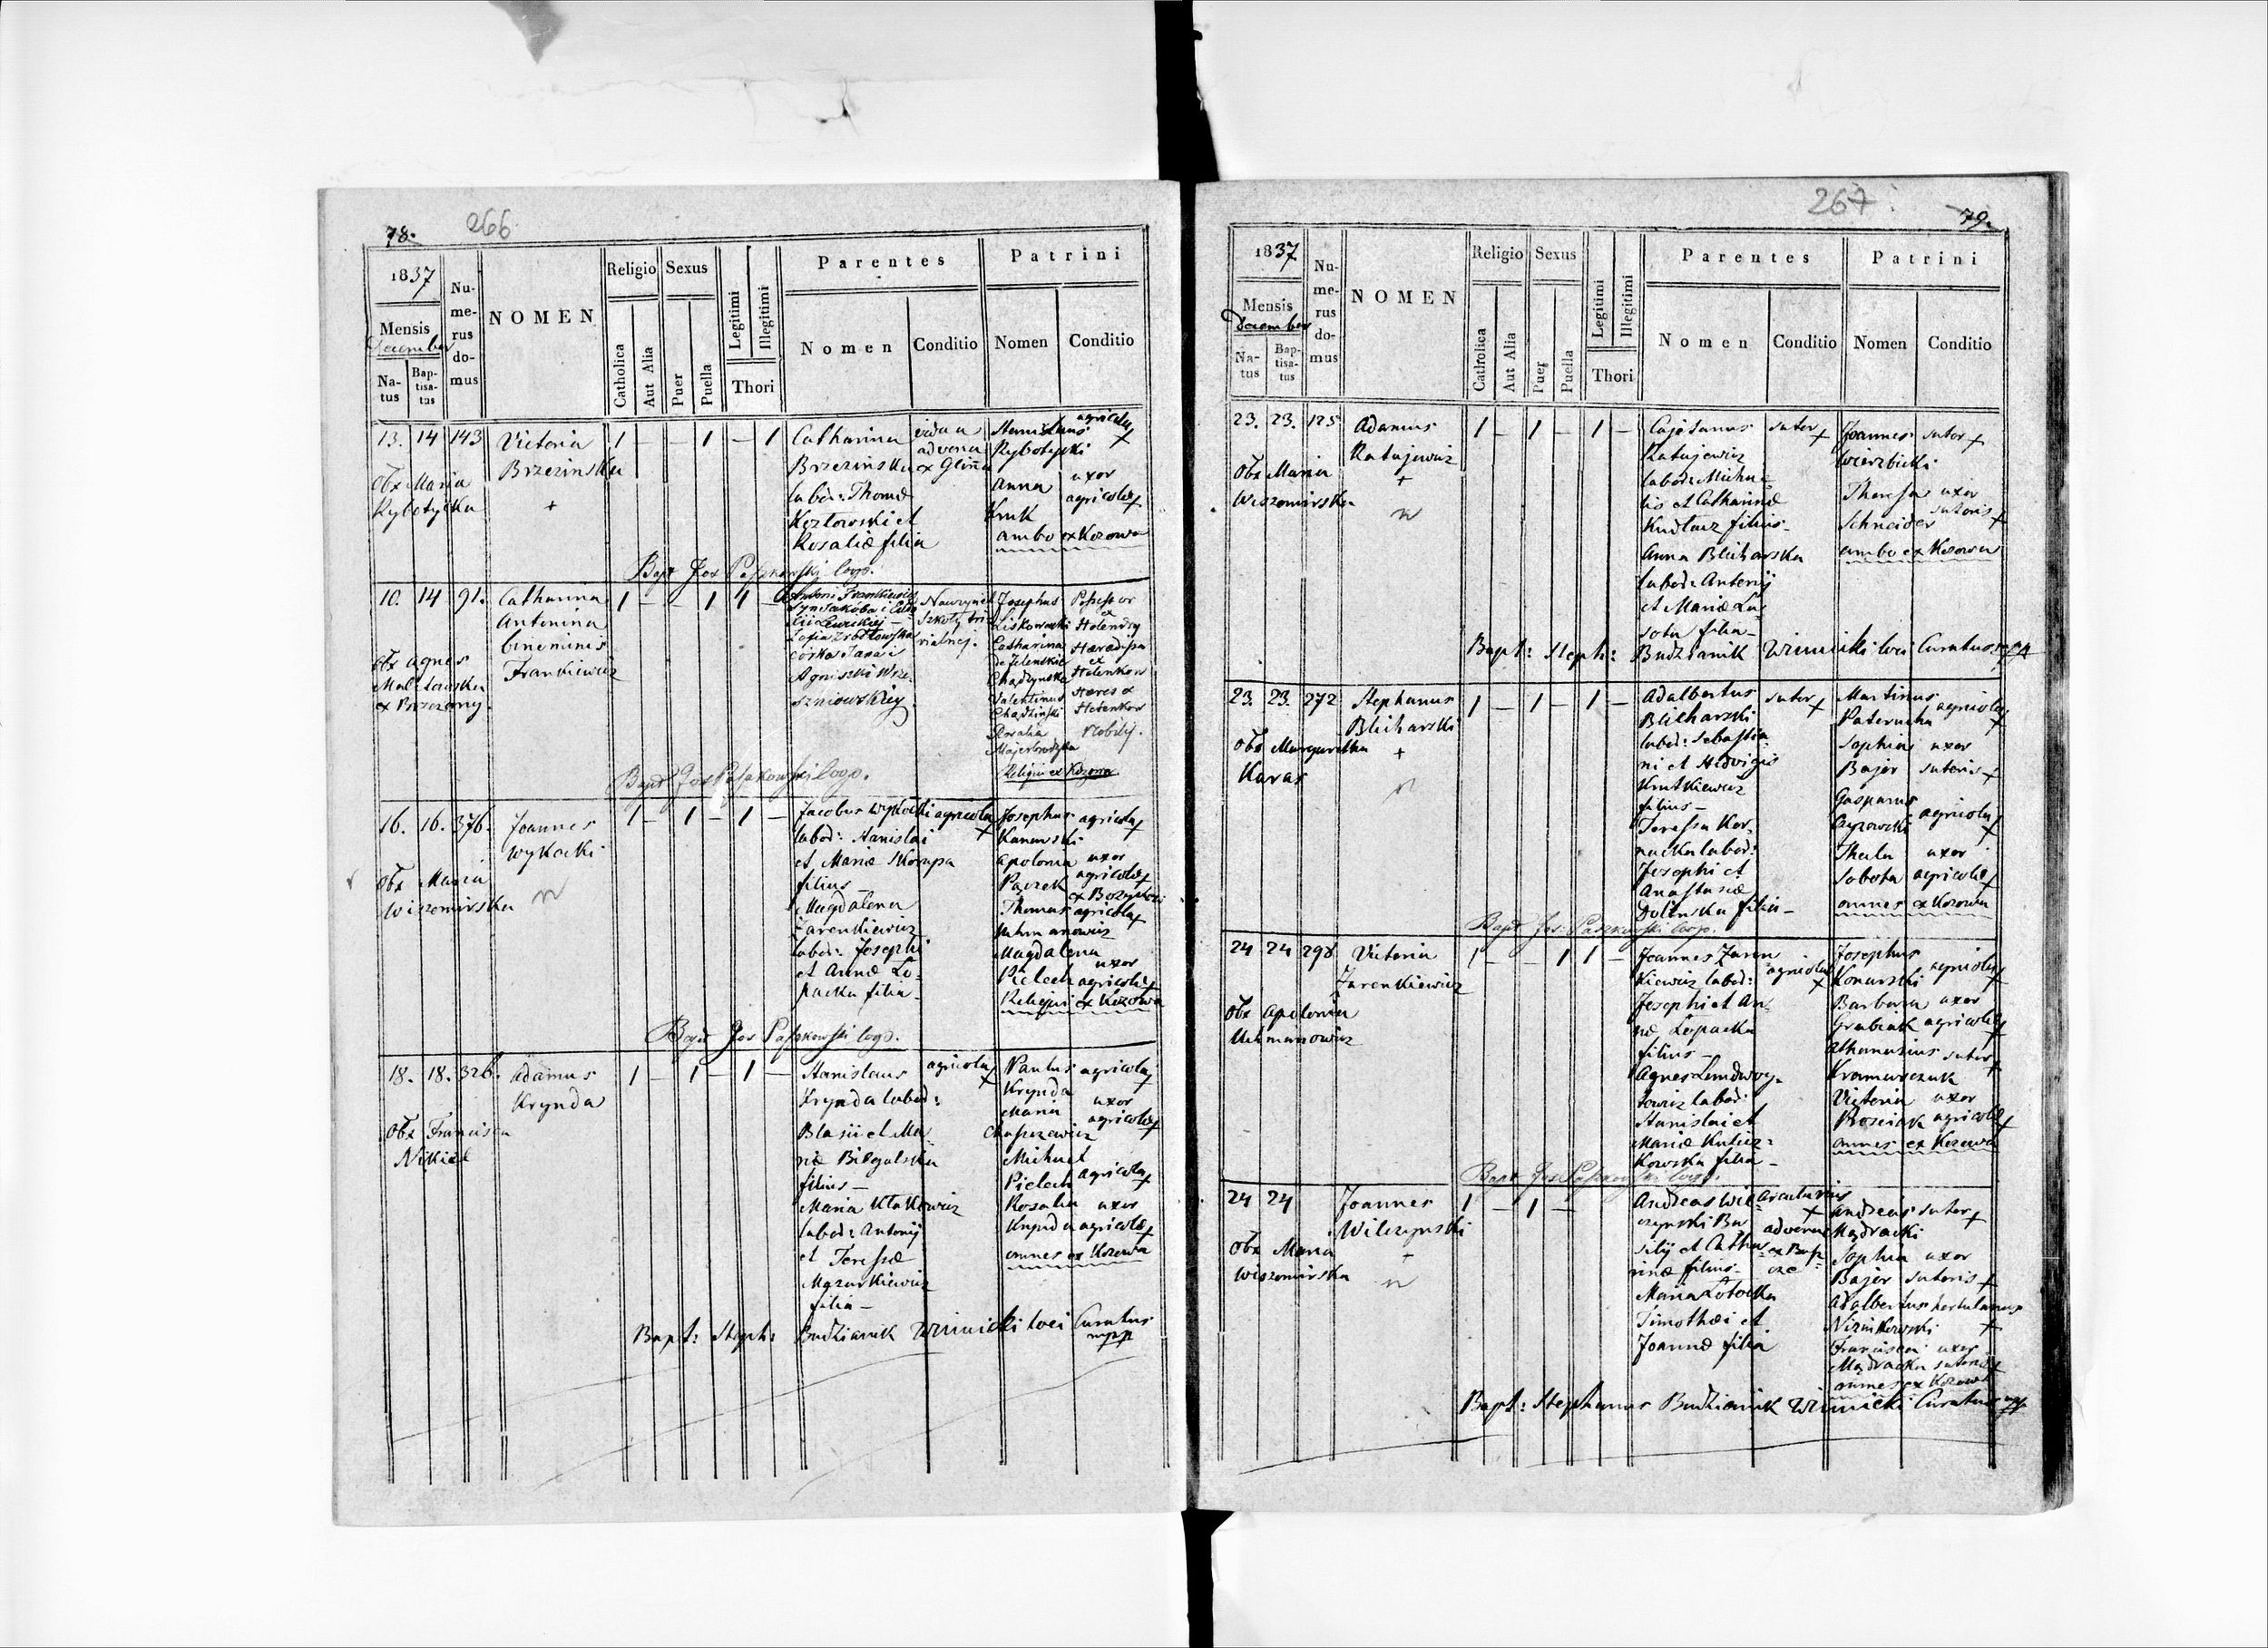 78.
266
1837
Mensis
December
Na-
tus
Bap-
tisa-
tus
Nu-
me-
rus
do-
mus
NOMEN
Religio
Catholica
Aut Alia
Sexus
Puer
Puella
Legitimi
Illegitimi
Thori
Parentes
Nomen
Conditio
Patrini
Nomen
Conditio
13. 14 143
Obx Maria
Rybotycka
Victoria
Brzezinska
+
1 1 – 1
Catharina
Brzezinska
labor: Thomæ
Kozłowski et
Rosaliæ filia
vidua
advena
ex Glinna
Stanislaus
Rybotycki
Anna
Kruk
ambo ex Kozowa
agricola +
uxor
agricolæ +
Bapt Jos Paszkowski Coop.
10. 14 91.
obx Agnes
ex Brzezany.
Catharina
Antonina
binominis
Frankiewicz
1 – – 1 1 –
Antoni Frankiewicz
syn Jakoba i
Lewickiej –
Zofia
córka Jana i
Agniszki Wrze-
szniowskiey
Nauczyciel
szkoły tri-
vialnej.
Josephus
Liskowacki
Catharina
de Zelenskie
Valentinus
Rosalia
Possessor
ex
Holendry
ex
Helenkow
Hæres ex
Helenkow
Nobilis.
Reliqui ex Kozowa
Bapt Jos Paszkowski Coop.
16. 16. 376.
Obx Maria
Wiszomirska
Joannes
Wykocki
1 – 1 – 1 –
Jacobus Wykocki
labor: Stanislai
et Mariæ Skorupa
filius –
Magdalena
Zarenkiewicz
labor: Josephi
et Annæ Lo-
packa filia –
agricola +
Josephus
Konarski
Apolonia
Pączek
Thomas
Uchmanowicz
Magdalena
Pielech
Reliqui ex Kozowa
agricola +
uxor
agricolæ +
agricola +
uxor
agricolæ +
Bapt Jos Paszkowski Coop.
18. 18. 326.
Obx Francisca
Nikiel
Adamus
Krynda
1 – 1 – 1 –
Stanislaus
Krynda labor:
Blasii et Ma-
riæ
filius –
Maria Kłakowicz
labor: Antonij
et Teressæ
Mazurkiewicz
filia –
agricola +
Paulus
Krynda
Maria
Michael
Pielech
Rosalia
Krynda
omnes ex Kozowa
agricola +
uxor
agricolæ +
agricola +
uxor
agricolæ +
Bapt: Steph: Budzianik Winnicki loci Curatus
mpp
267
79.
1837
Mensis
December
Na-
tus
Bap-
tisa-
tus
Nu-
me-
rus
do-
mus
NOMEN
Religio
Catholica
Aut Alia
Sexus
Puer
Puella
Legitimi
Illegitimi
Thori
Parentes
Nomen
Conditio
Patrini
Nomen
Conditio
23. 23. 125
Obx Maria
Wiszomirska
Adamus
Ratajewicz
+
1 – 1 – 1 –
Cajetanus
Ratajewicz
labor: Micha-
lis et Catharinæ
Kudłacz filius –
Anna Blicharska
labor: Antonij
et Mariæ La-
sota filia –
sutor +
Joannes
Wierzbicki
Theressa
Schneider
ambo ex Kozowa
sutor +
uxor
sutoris +
Bapt: Steph: Budzianik Winnicki loci Curatus mpp
23. 23. 272
Obx Margaretha
Karas
Stephanus
Blicharski
+
1 – 1 – 1 –
Adalbertus
Blicharski
labor: Sebastia-
ni et Hedvigis
Krutkiewicz
filius –
Teressa Kor-
nacka labor:
Josephi et
Anastasiæ
Dolinska filia –
sutor +
Martinus
Paterncha
Sophia
Bajor
Gasparus
Thecla
Sobota
omnes ex Kozowa
agricola +
uxor
sutoris +
agricola +
uxor
agricolæ +
Bapt Jos: Paszkowski Coop.
24 24 298
Obx Apolonia
Uchmanowicz
Victoria
Zarenkiewicz
1 – – 1 1 –
Joannes Zaren-
kiewicz labor:
Josephi et An-
næ Lopacka
filius –
Agnes Lendwoy-
towicz labor:
Stanislai et
Mariæ Kulicz-
kowska filia –
agricola +
Josephus
Konarski
Barbara
Grabiak
Athanasius
Kramarczuk
Victoria
Wosciak
omnes ex Kozowa
agricola +
uxor
agricolæ +
sutor +
uxor
agricolæ +
Bapt Jos Paszkowski Coop.
24 24
Obx Maria
Wiszomirska
Joannes
Wilczynski
–
1 – 1 –
Andreas Wil-
czynski Ba-
silij et Catha-
rinæ filius –
Maria Lotocka
Timothæi et
Joannæ filia
advena
Andreas
Mądracki
Sophia
Bajor
Adalbertus
Francisca
Mądracka
omnes ex Kozowa
sutor +
uxor
sutoris +
hortulanus
+
uxor
sutoris +
Bapt: Stephanus Budzianik Winnicki Curatus mpp